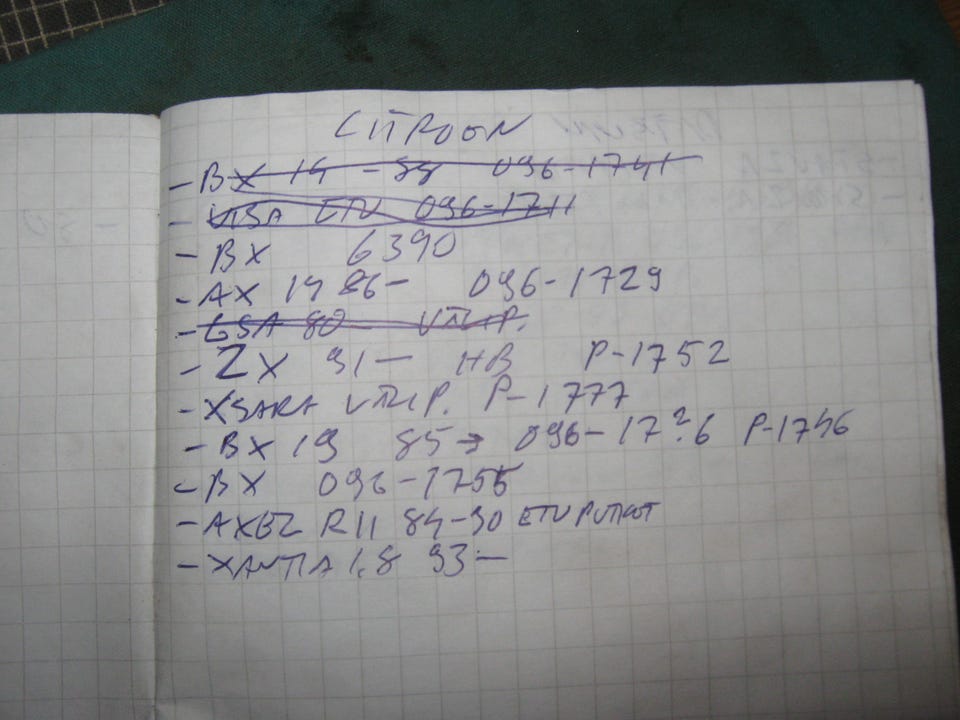 CITROEN
- BX 14 -88 096-1741
- VISA ETU 096-1711
- BX 6390
- AX 14 86- 096-1729
- GSA 80- VTRIP.
- ZX 91- HB P-1752
- XSARA VTRIP. P-1777
- BX 19 85→ 096-17?6 P-1746
- BX 096-1755
- AXEL R11 84-90 ETU PUTKET
- XANTIA 1.8 93-